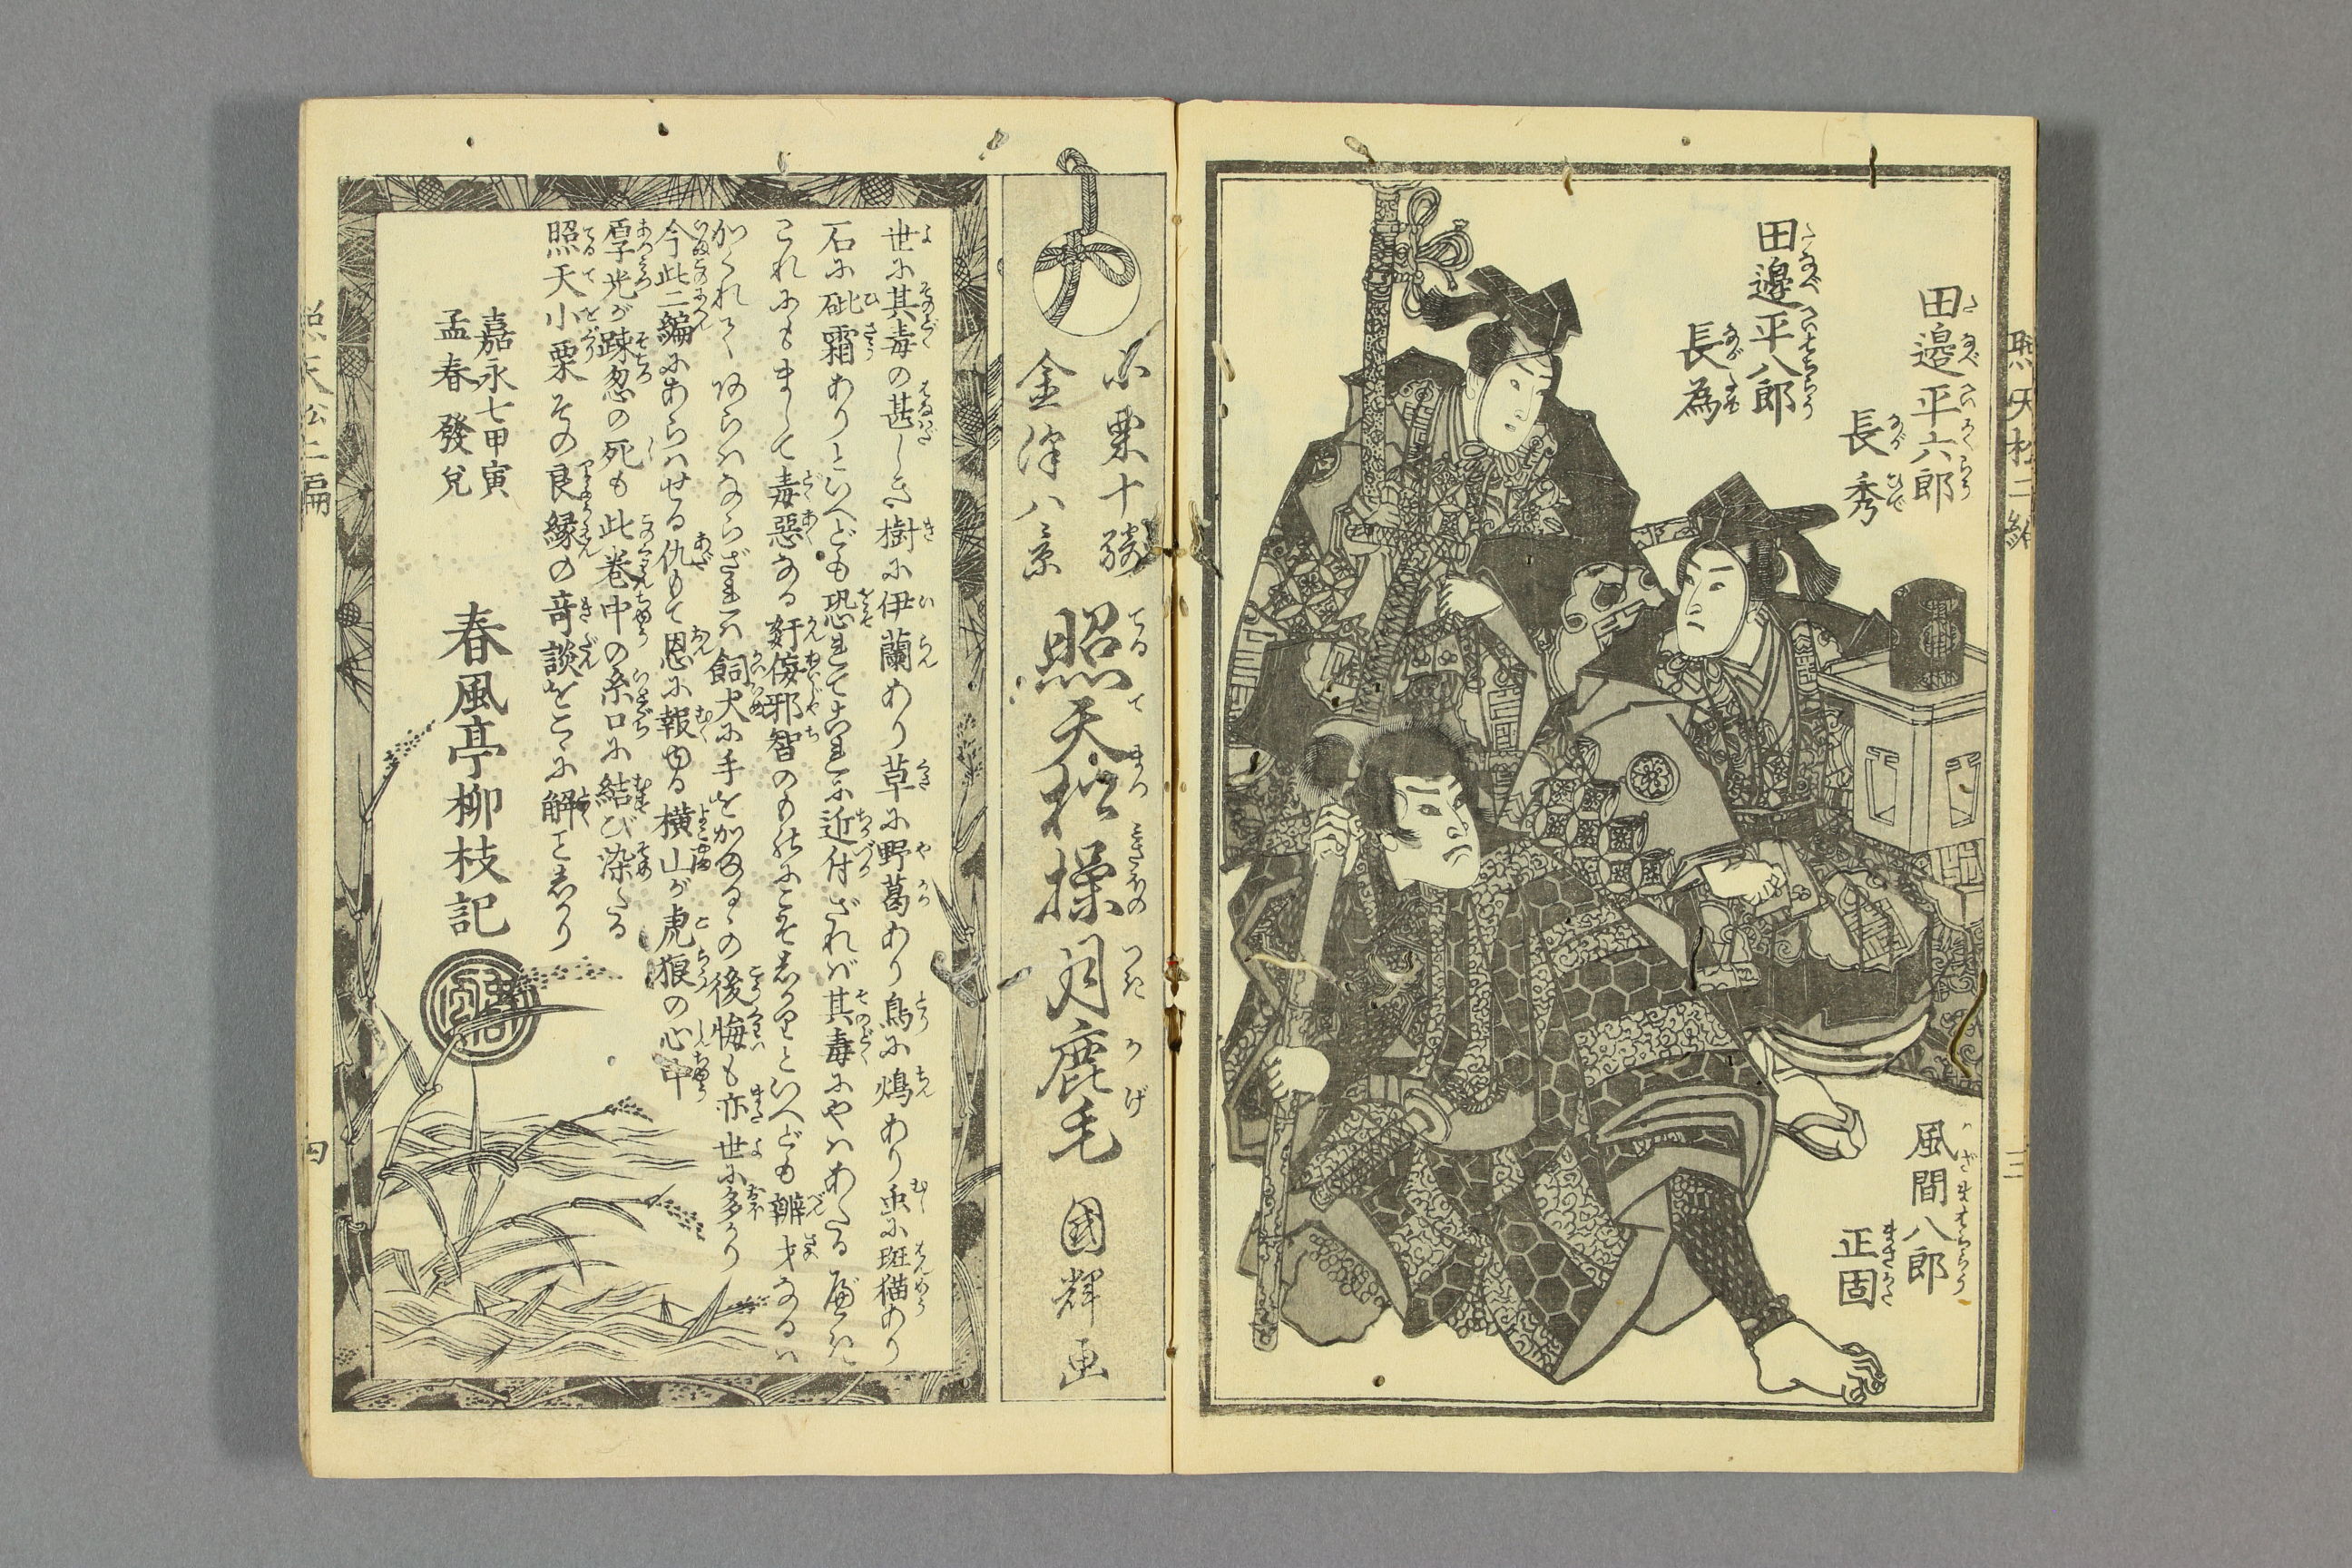 田邉平六郎
長秀
田邉平八郎
長為
風間八郎
正固
照天松二編
三
小栗十勝
金澤八景
照天松操月鹿毛
國輝画
世に其毒の甚しき樹に伊蘭あり草に野葛あり鳥に鴆あり虫に斑猫あり
石に砒霜ありといへども恐れて是に近付ざれば其毒にやはあたるべき
これにもまして毒惡なる奸佞邪智のものにこそあれといへども辨才なるハ
飼犬に手をかまるゝの後悔も亦世に多かり
今此二編にあらハせる仇もて恩に報ゆる横山が虎狼の心中
厚光が踈忽の死も此巻中の糸口に結び染たる
照天小栗その良縁の竒談をこゝに解ときぬ
嘉永七甲寅
孟春發兌
春風亭柳枝記
照天松二編
四